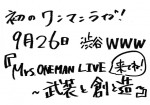 初のワンマンライブ!!
9月26日 渋谷WWW
『Mrs. ONEMAN LIVE 来てね!
～武装と創と造』